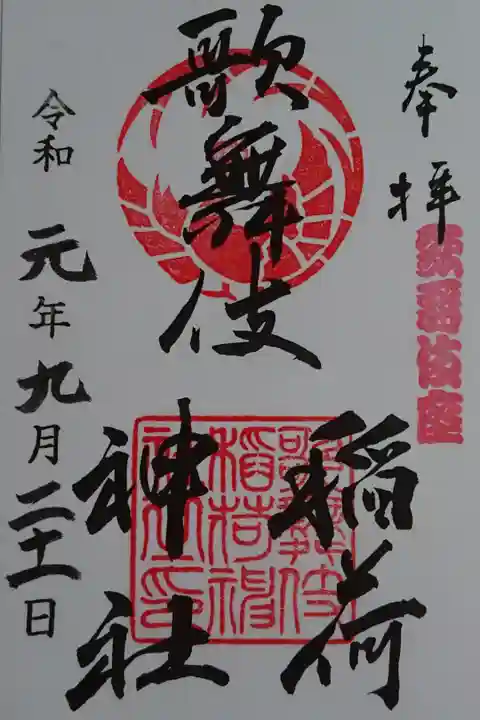 奉拝
歌舞伎座
歌舞伎
稲荷
神社
歌舞伎
稲荷神
社印
令和元年九月二十一日